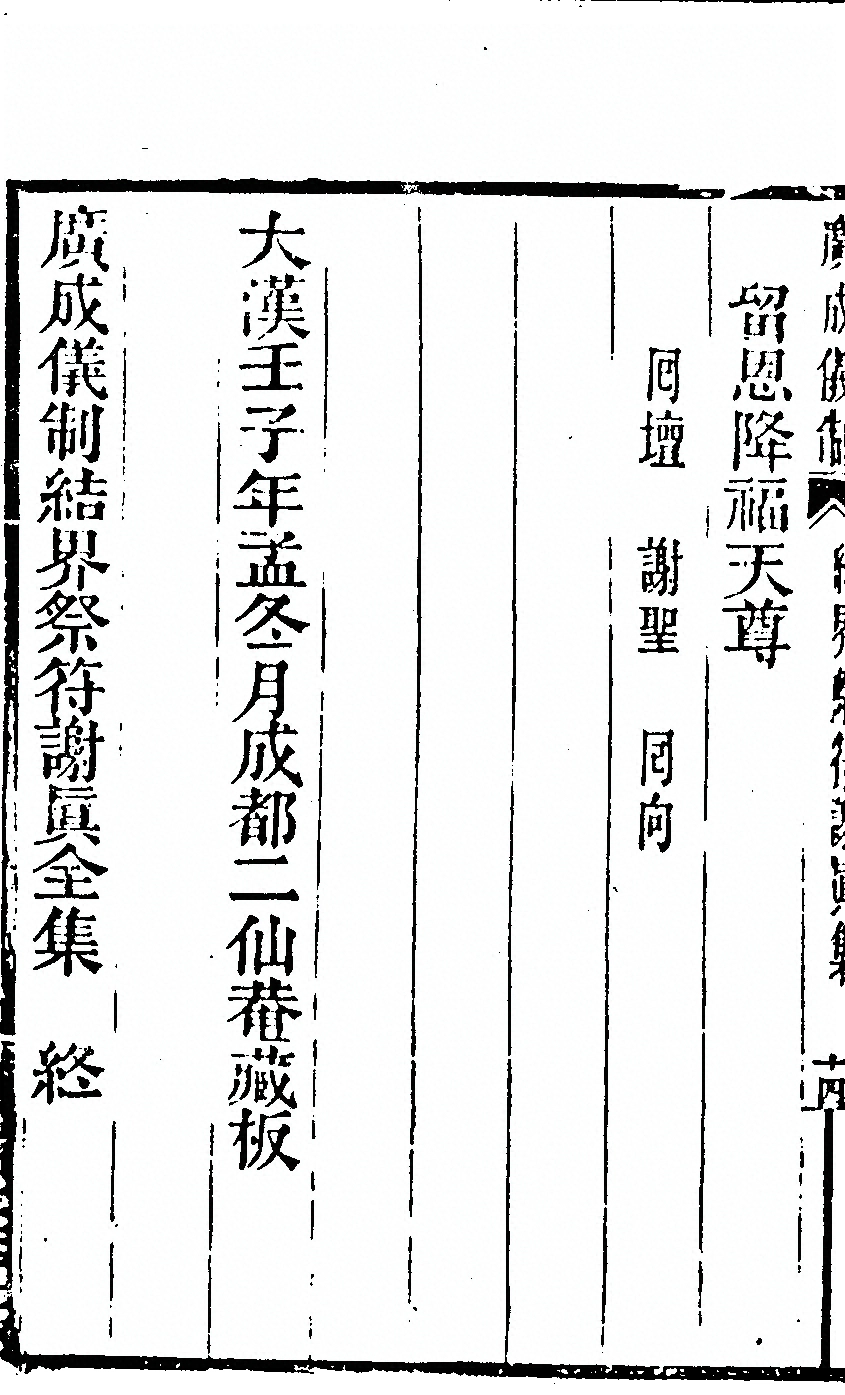 廣成儀制 結界祭符謝眞集 十四
留恩降福天尊
囘壇 謝聖 囘向
大漢壬子年孟冬月成都二仙菴藏板
廣成儀制結界祭符謝眞全集 終